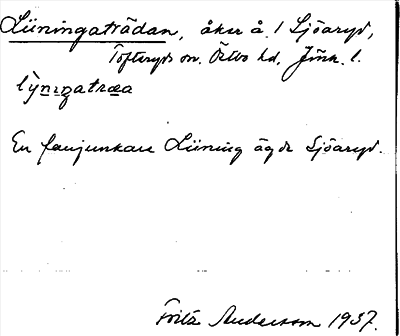 Lüningaträdan, åker å 1 Sjöaryd,
Tofteryds sn. Östbo hd, Jönk. l.
lẏningatræa
En fanjunkare Lüning ägde Sjöaryd.
Fritz Andersson 1937.